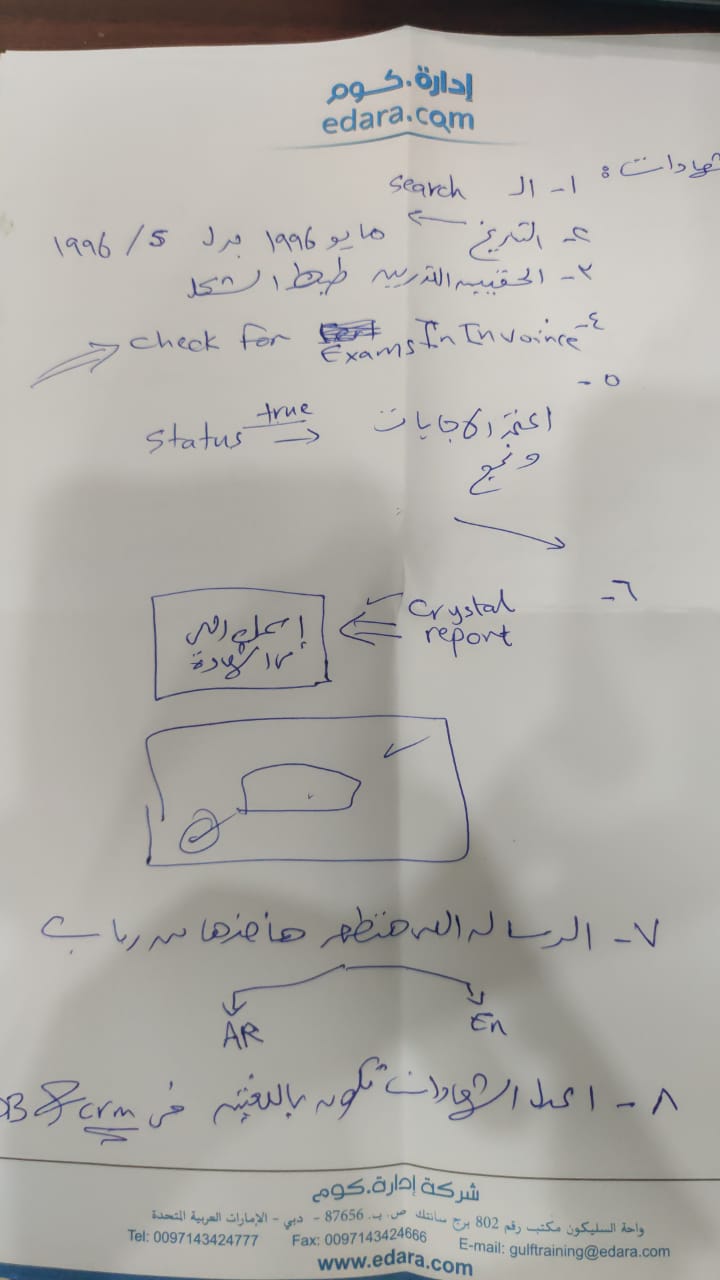 إدارة.كوم
edara.com
شهادات :
١- الـ search
٢- التاريخ ← مايو 1996 بدل 5 / 1996
٣- الحقيبه التدريبيه ظبط الشكل
٤- Check For Exams In Invoince
٥-
الاجابات true → Status
ونجح
٦-
Crystal report
الشهادة
٧- الرساله اللى هتظهر هاخدها من رباب
AR En
٨- اعمل الشهادات تكون باللغتين فى crm & DB
شركة إدارة.كوم
واحة السليكون مكتب رقم 802 برج سانتك ص. ب. 87656 - دبي - الإمارات العربية المتحدة
Tel: 0097143424777 Fax: 0097143424666 E-mail: gulftraining@edara.com
www.edara.com